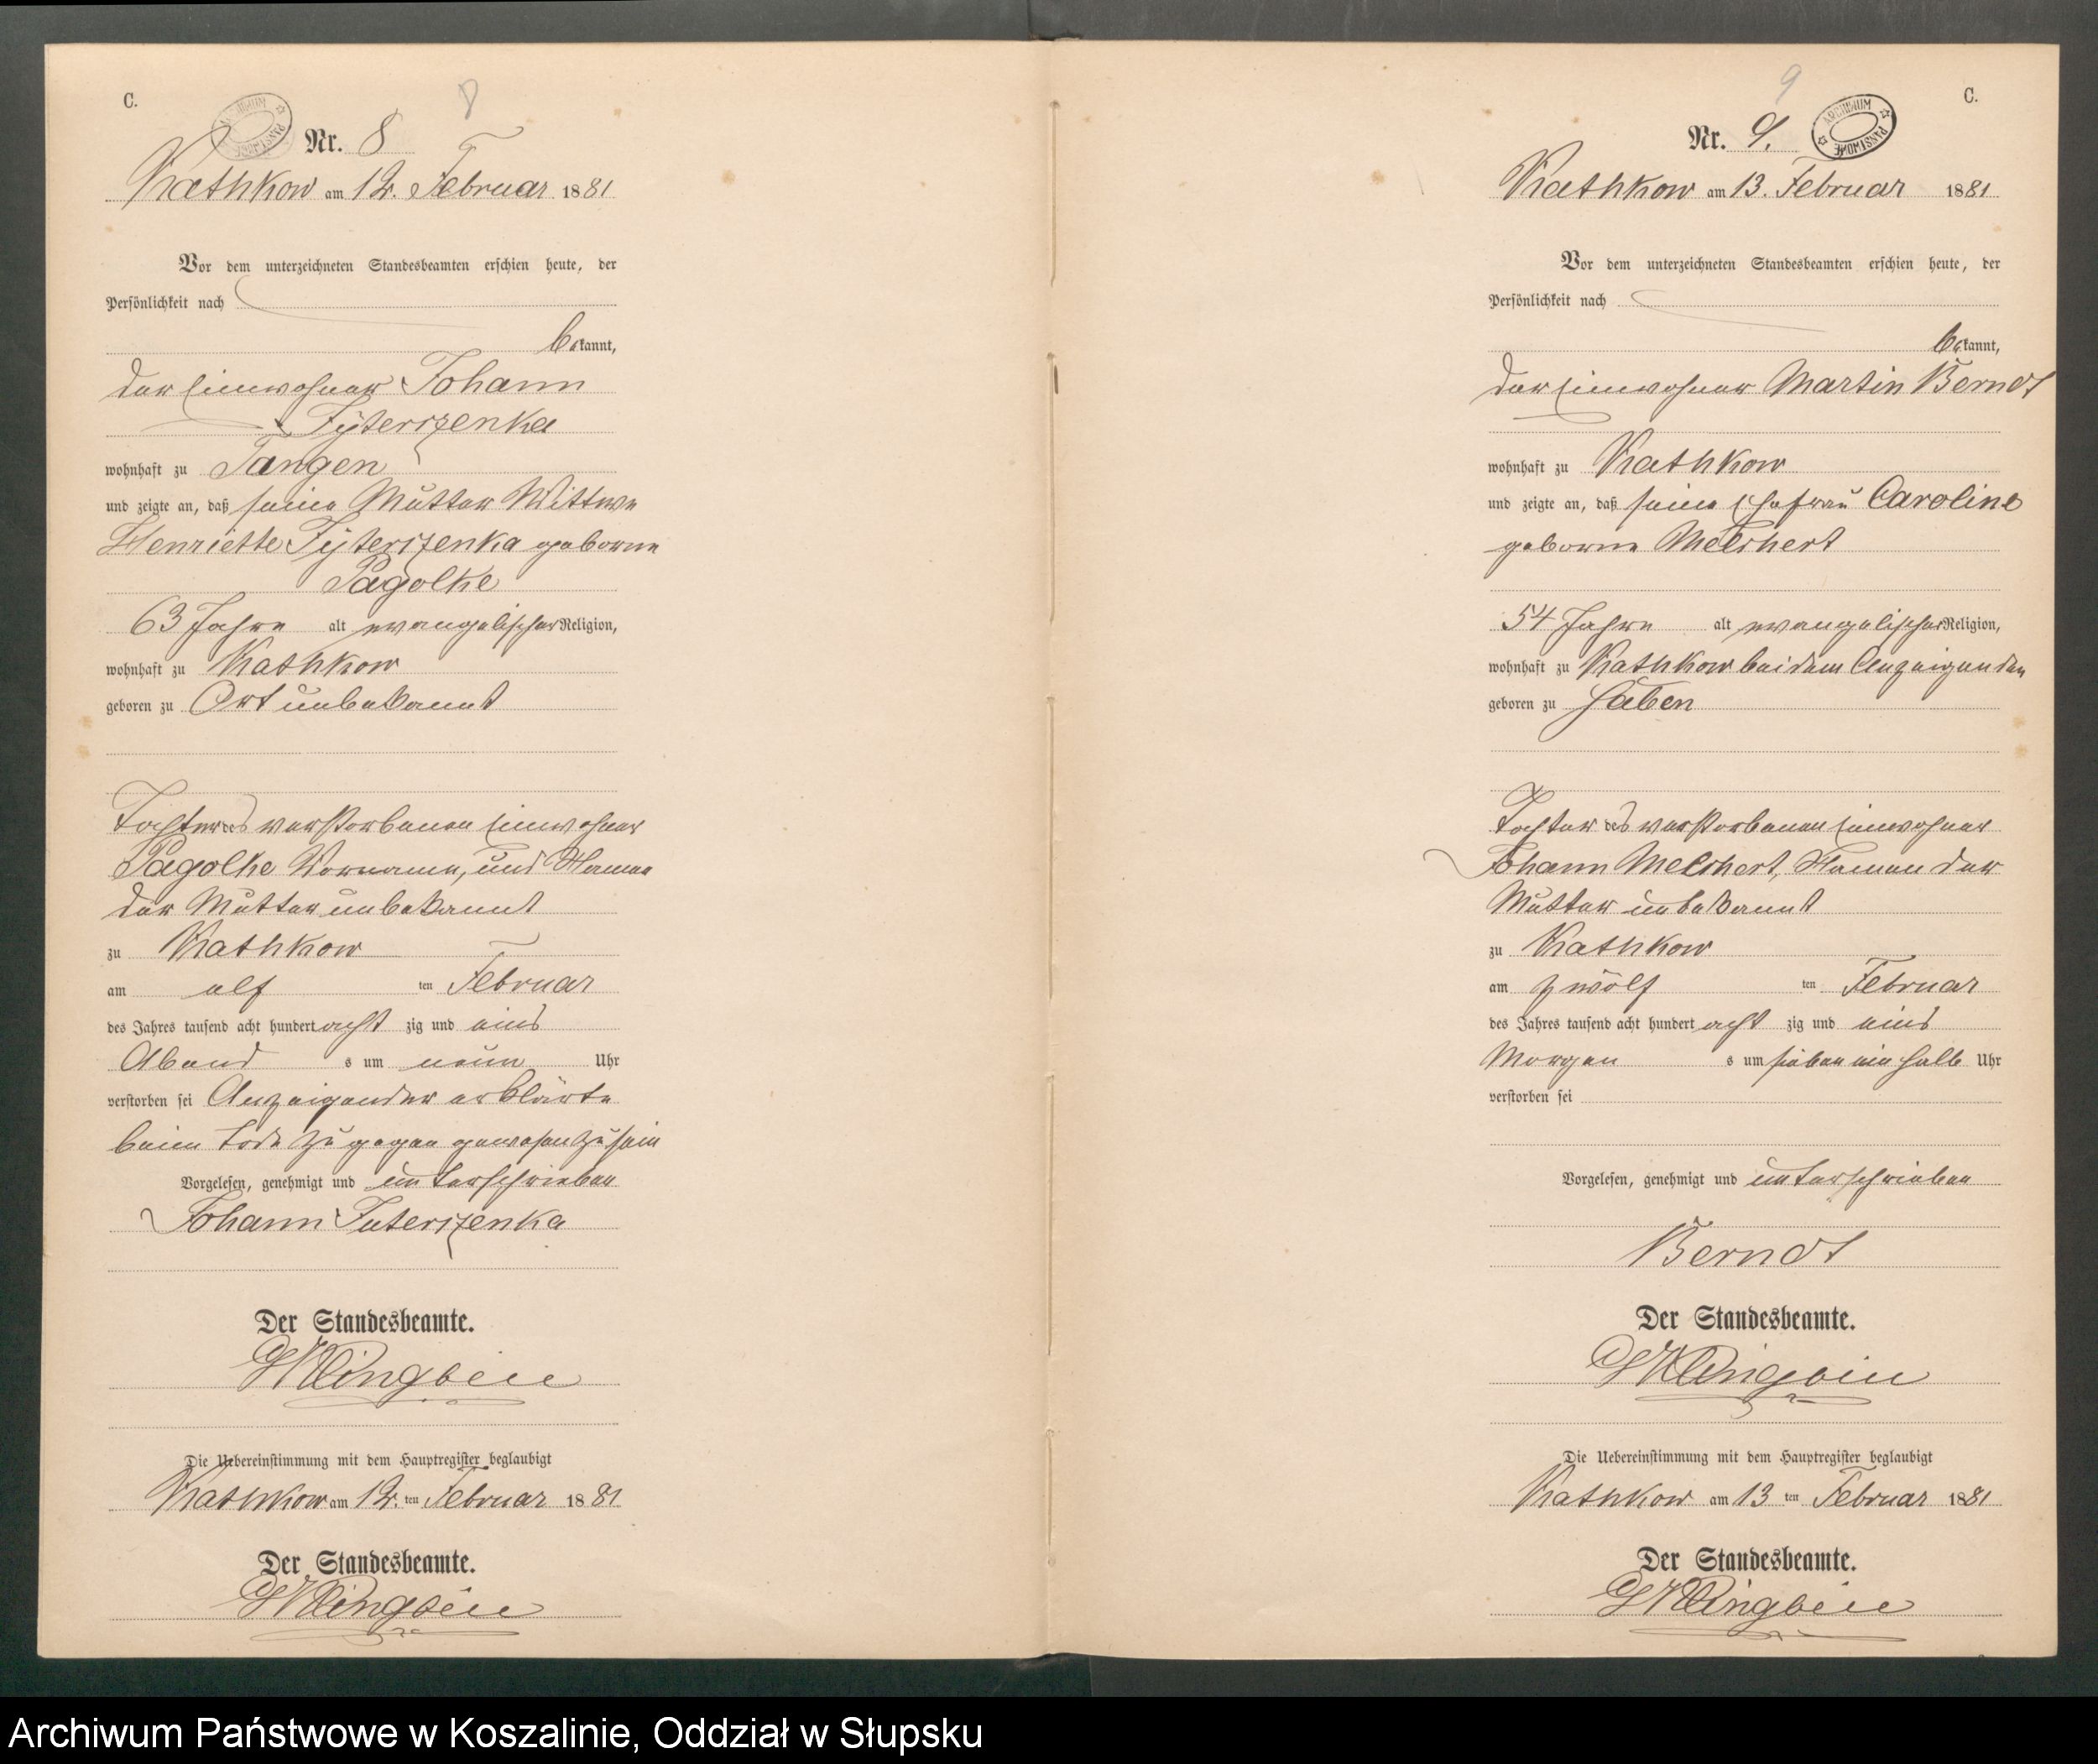 C.
8
Nr. 8
Kathkow am 12. Februar 1881
Vor dem unterzeichneten Standesbeamten erschien heute, der
Persönlichkeit nach
bekannt,
der Einwohner Johann
Tyterszenka
wohnhaft zu Tangen
und zeigte an, daß seine Mutter Wittwe
Henriette Tyterszenka geborne
Pagolke
63 Jahre alt evangelischer Religion,
wohnhaft zu Kathkow
geboren zu Ort unbekannt
Tochter des verstorbenen Einwohner
Pagolke Vorname, und Namen
der Mutter unbekannt
zu Kathkow
am elf ten Februar
des Jahres tausend acht hundert acht zig und eins
Abend s um neun Uhr
verstorben sei Anzeigender erklärte
beim Tode zugegen gewesen zu sein
Vorgelesen, genehmigt und unterschrieben
Johann Tuterszenka
Der Standesbeamte.
Klingbeil
Die Uebereinstimmung mit dem Hauptregister beglaubigt
Kathkow am 12. ten Februar 1881
Der Standesbeamte.
Klingbeil
9
C.
ARCHIWUM PAŃSTWOWE
Nr. 9.
Kathkow am 13. Februar 1881
Vor dem unterzeichneten Standesbeamten erschien heute, der
Persönlichkeit nach
bekannt,
der Einwohner Martin Berndt
wohnhaft zu Kathkow
und zeigte an, daß seine Ehefrau Caroline
geborne Melchert
54 Jahre alt evangelischer Religion,
wohnhaft zu Kathkow bei dem Anzeigenden
geboren zu Gaben
Tochter des verstorbenen Einwohner
Johann Melchert, Namen der
Mutter unbekannt
zu Kathkow
am zwölf ten Februar
des Jahres tausend acht hundert acht zig und eins
Morgen s um sieben ein halb Uhr
verstorben sei
Vorgelesen, genehmigt und unterschrieben
Berndt
Der Standesbeamte.
Klingbeil
Die Uebereinstimmung mit dem Hauptregister beglaubigt
Kathkow am 13 ten Februar 1881
Der Standesbeamte.
Klingbeil
Archiwum Państwowe w Koszalinie, Oddział w Słupsku